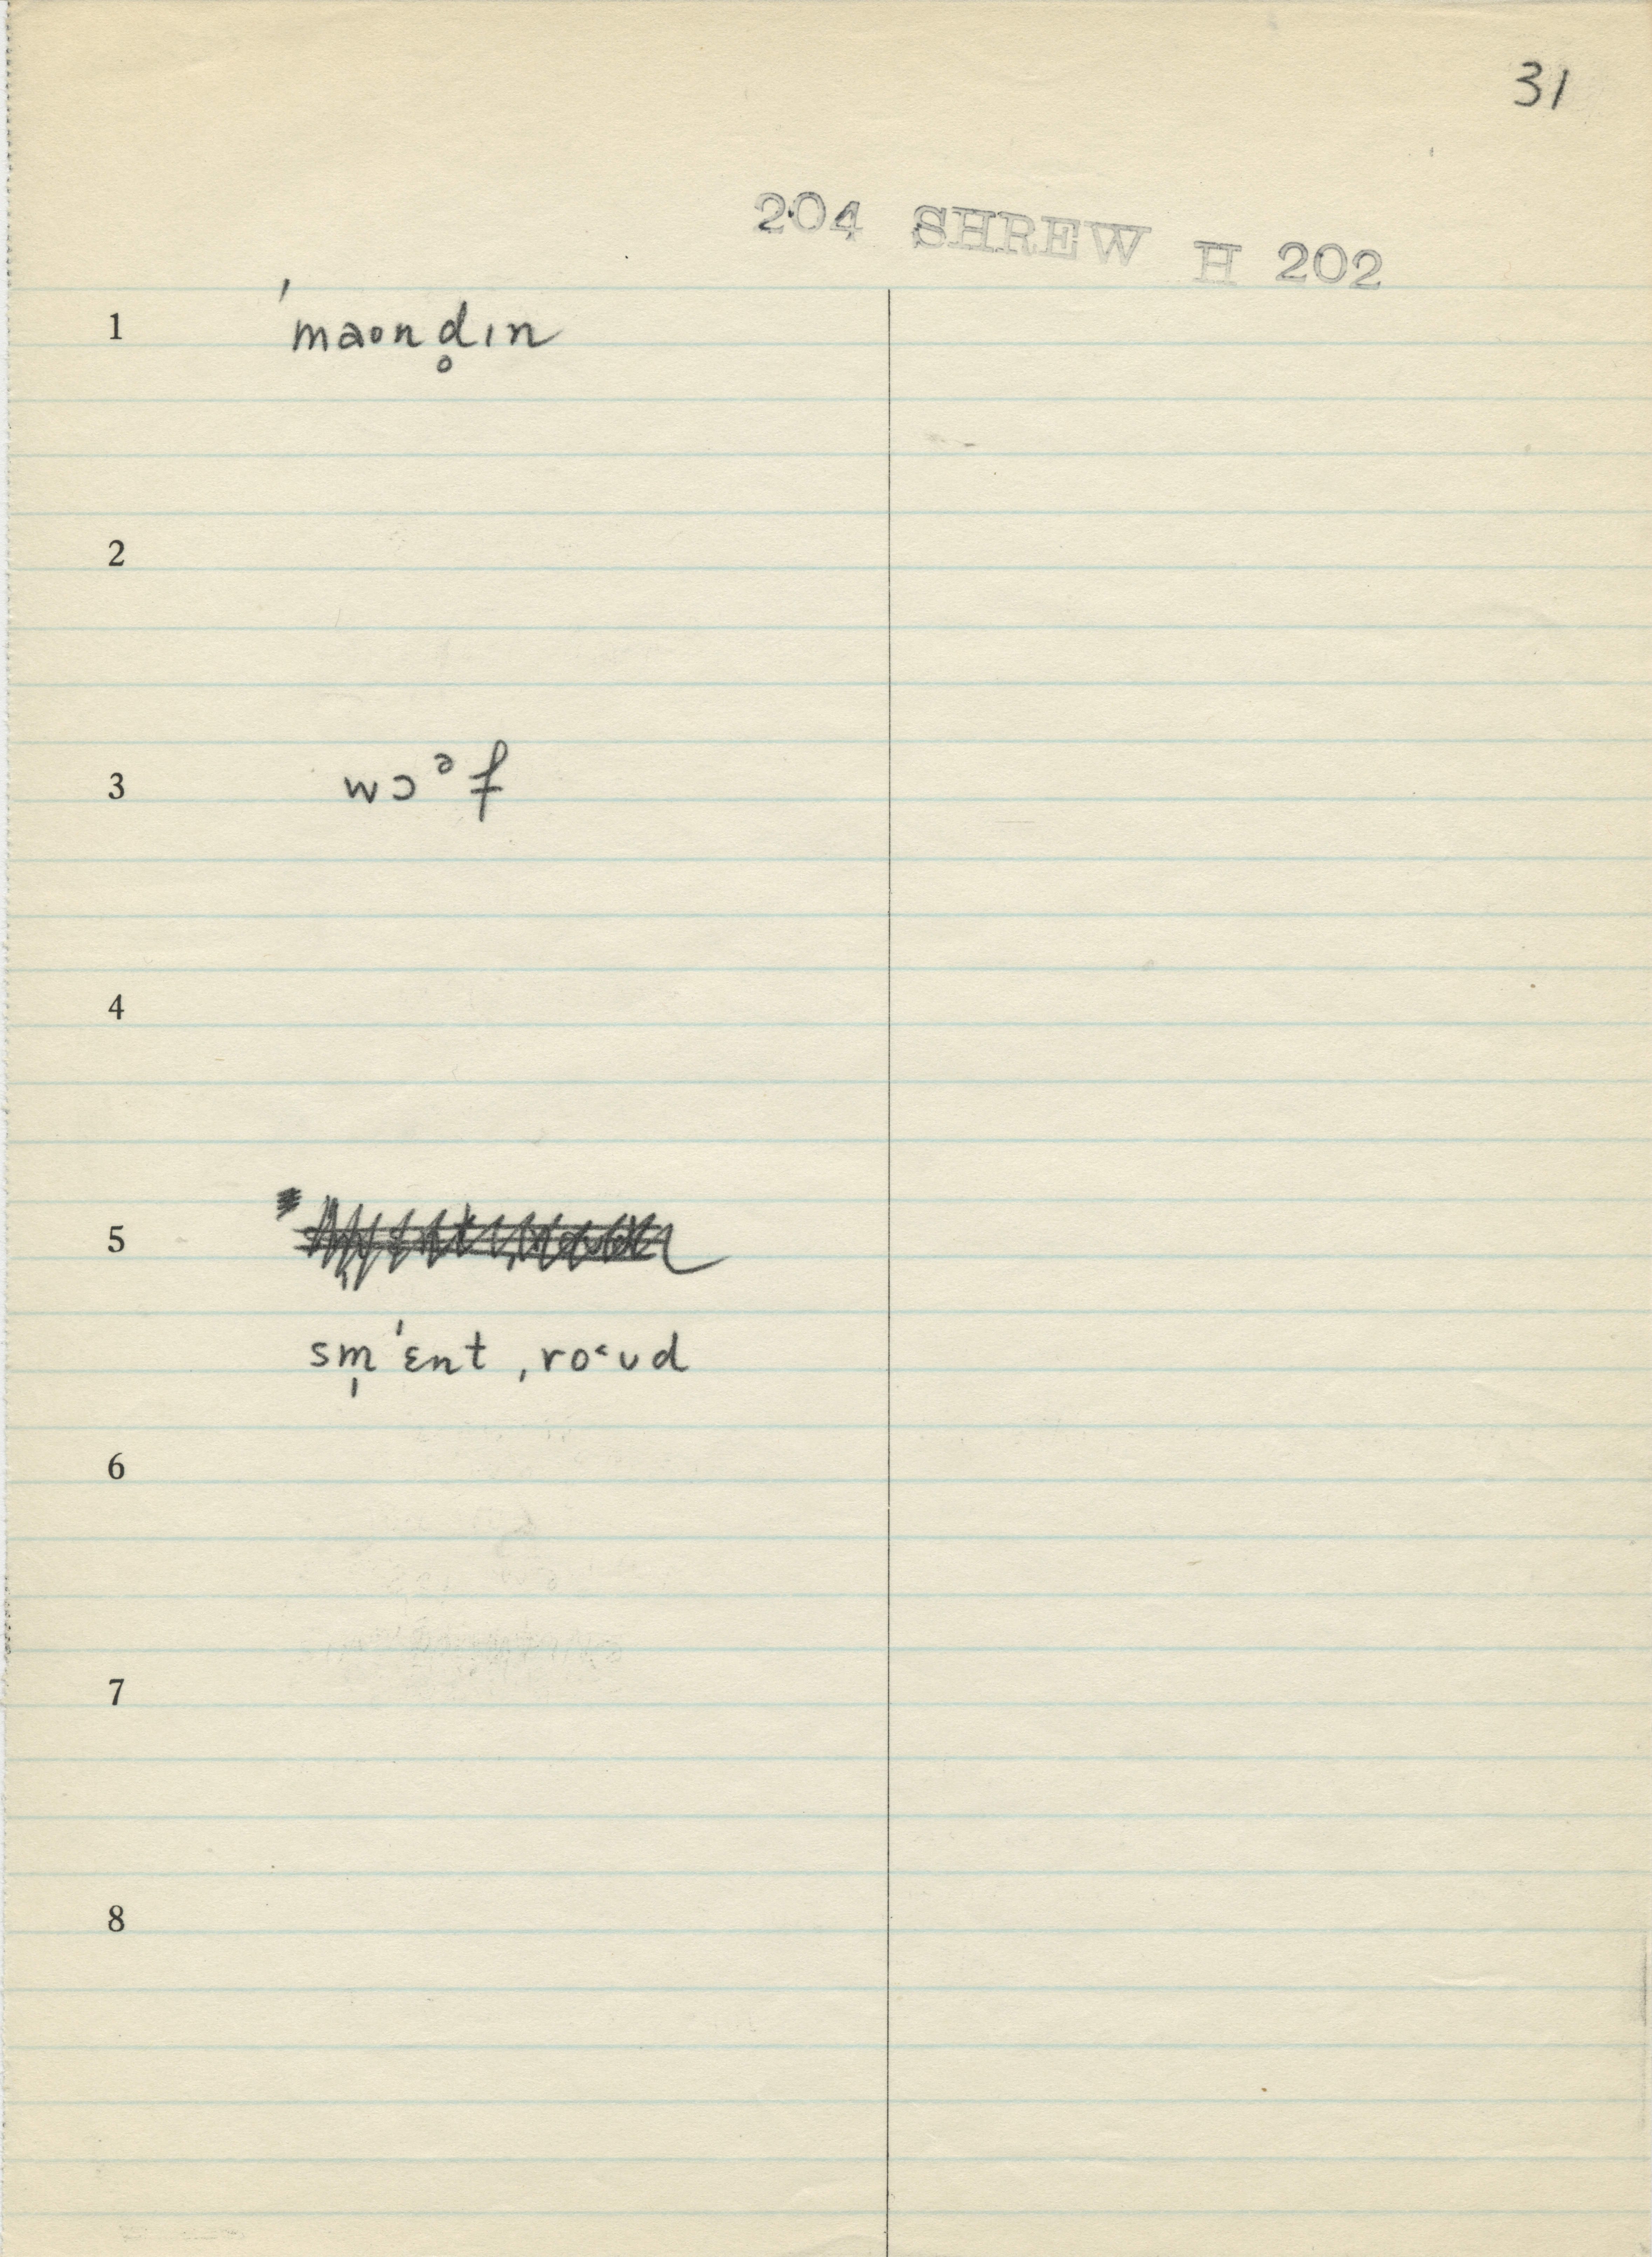 31
204 SHREW H 202
1 ˈmaond̥ɪn
2
3 wɔᵊf
4
5
sm̩ˈɛnt ˌro˂ʊd
6
7
8